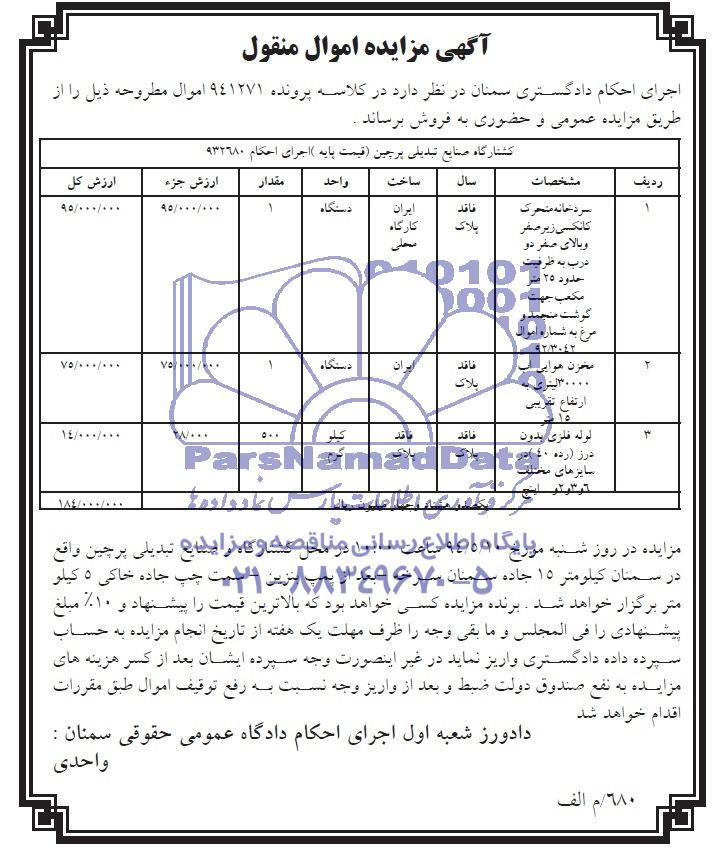 آگهی مزایده اموال منقول
اجرای احکام دادگستری سمنان در نظر دارد در کلاسه پرونده ۹۴۱۲۷۱ اموال مطروحه ذیل را از
طریق مزایده عمومی و حضوری به فروش برساند .
کشتارگاه صنایع تبدیلی پرچین (قیمت پایه )اجرای احکام ۹۳۲۶۸۰
ردیف مشخصات سال ساخت واحد مقدار ارزش جزء ارزش کل
۱ سردخانه متحرک کانکسی زیر صفر وبالای صفر دو درب به ظرفیت حدود ۲۵ متر مکعب جهت گوشت منجمد و مرغ به شماره اموال ۹۲/۳۰۴۲ فاقد پلاک ایران کارگاه محلی دستگاه ۱ ۹۵/۰۰۰/۰۰۰ ۹۵/۰۰۰/۰۰۰
۲ مخزن هوایی آب ۳۰۰۰۰لیتری به ارتفاع تقریبی ۱۵ متر فاقد پلاک ایران دستگاه ۱ ۷۵/۰۰۰/۰۰۰ ۷۵/۰۰۰/۰۰۰
۳ لوله فلزی بدون درز (رده ۴۰ )در سایزهای مختلف ۶و۳و۲و اینچ فاقد پلاک فاقد پلاک کیلو گرم ۵۰۰ ۲۸/۰۰۰ ۱۴/۰۰۰/۰۰۰
یکصدو هشتاد و چهار میلیون ریال ۱۸۴/۰۰۰/۰۰۰
010101
0001
10
ParsNamadData
مرکز فن‌آوری اطلاعات پارس نماد داده‌ها
پایگاه اطلاع رسانی مناقصه و مزایده
۰۲۱-۸۸۳۴۹۶۷۰-۵
مزایده در روز شنبه مورخ ۹۴/۵/۱۰ ساعت ۱۰:۰۰ در محل کشتارگاه و صنایع تبدیلی پرچین واقع
در سمنان کیلومتر ۱۵ جاده سمنان سرخه –بعد از پمپ بنزین –سمت چپ جاده خاکی ۵ کیلو
متر برگزار خواهد شد . برنده مزایده کسی خواهد بود که بالاترین قیمت را پیشنهاد و ۱۰٪ مبلغ
پیشنهادی را فی المجلس و ما بقی وجه را ظرف مهلت یک هفته از تاریخ انجام مزایده به حساب
سپرده داده دادگستری واریز نماید در غیر اینصورت وجه سپرده ایشان بعد از کسر هزینه های
مزایده به نفع صندوق دولت ضبط و بعد از واریز وجه نسبت به رفع توقیف اموال طبق مقررات
اقدام خواهد شد
دادورز شعبه اول اجرای احکام دادگاه عمومی حقوقی سمنان :
واحدی
۶۸۰/م الف